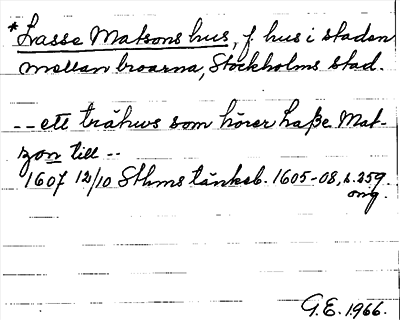 *Lasse Matsons hus, f. hus i staden
mellan broarna, Stockholms stad.
-- ett trähus som hörer Laße Mat-
zon till --
1607 12/10 Sthms tänkeb. 1605-08, s. 259.
orig.
G.E. 1966.